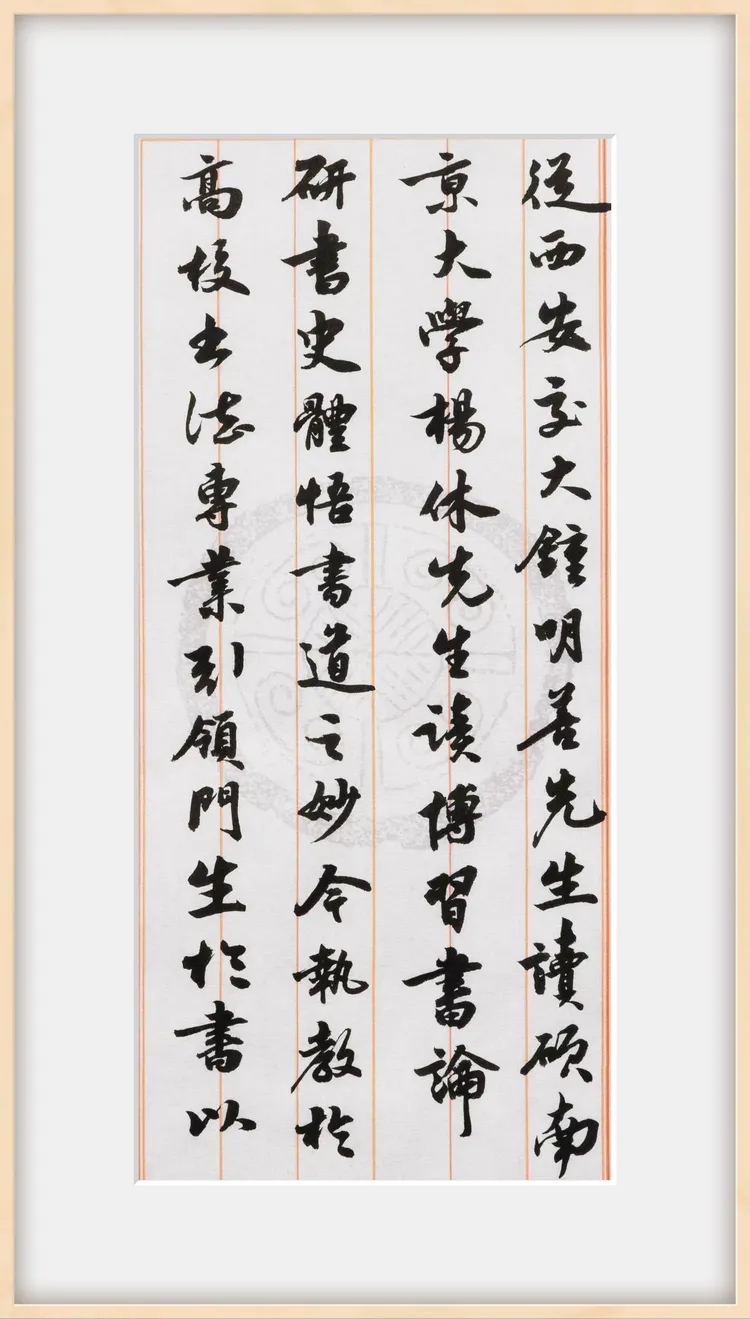 從西安交大鍾明善先生讀碩南
京大學楊休先生读博習書論
研書史體悟書道之妙今執教於
高校书法專業引領門生於書以